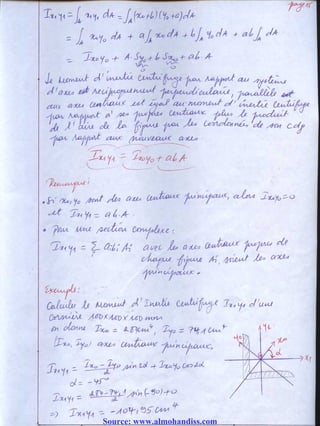 page 15
Ix₁y₁ = ∫A x₁y₁ dA = ∫A (x₀+b)(y₀+a) dA
= ∫A x₀y₀ dA + a∫A x₀ dA + b∫A y₀ dA + ab∫A dA
= Ix₀y₀ + a.Sy₀ + b Sx₀ + ab.A
0 0
Le Moment d'inertie centrifuge par rapport au système
d'axes réciproquement perpendiculaire, parallèle
aux axes centraux est égal au moment d'inertie centrifuge
par rapport à ses propres centraux plus le produit
de l'aire de la figure par les coordonnées de son cdg
par rapport aux nouveaux axes
Ix₁y₁ = Ix₀y₀ + abA
Remarque:
• Si x₀,y₀ sont des axes centraux principaux, alors Ix₀y₀=0
et Ix₁y₁ = ab.A.
• Pour une section complexe:
Ix₁y₁ = Σ aibiAi avec les axes centraux propres de
chaque figure Ai, soient les axes
principaux.
Exemple:
Calculer le Moment d'Inertie centrifuge Ix₁y₁ d'une
Cornière 100x100x10 mm
on donne Ix₀ = 284cm⁴, Iy₀ = 74,1cm⁴
(Ix₀, Iy₀) axes centraux principaux.
Ix₁y₁ = Ix₀ - Iy₀ / 2 sin2α + Ix₀y₀ cos2α
α = -45°
Ix₁y₁ = 284-74,1 / 2 sin(-90)+0
=> Ix₁y₁ = -104,95 cm⁴
y₀ y₁ x₀
α
x₁
Source: www.almohandiss.com